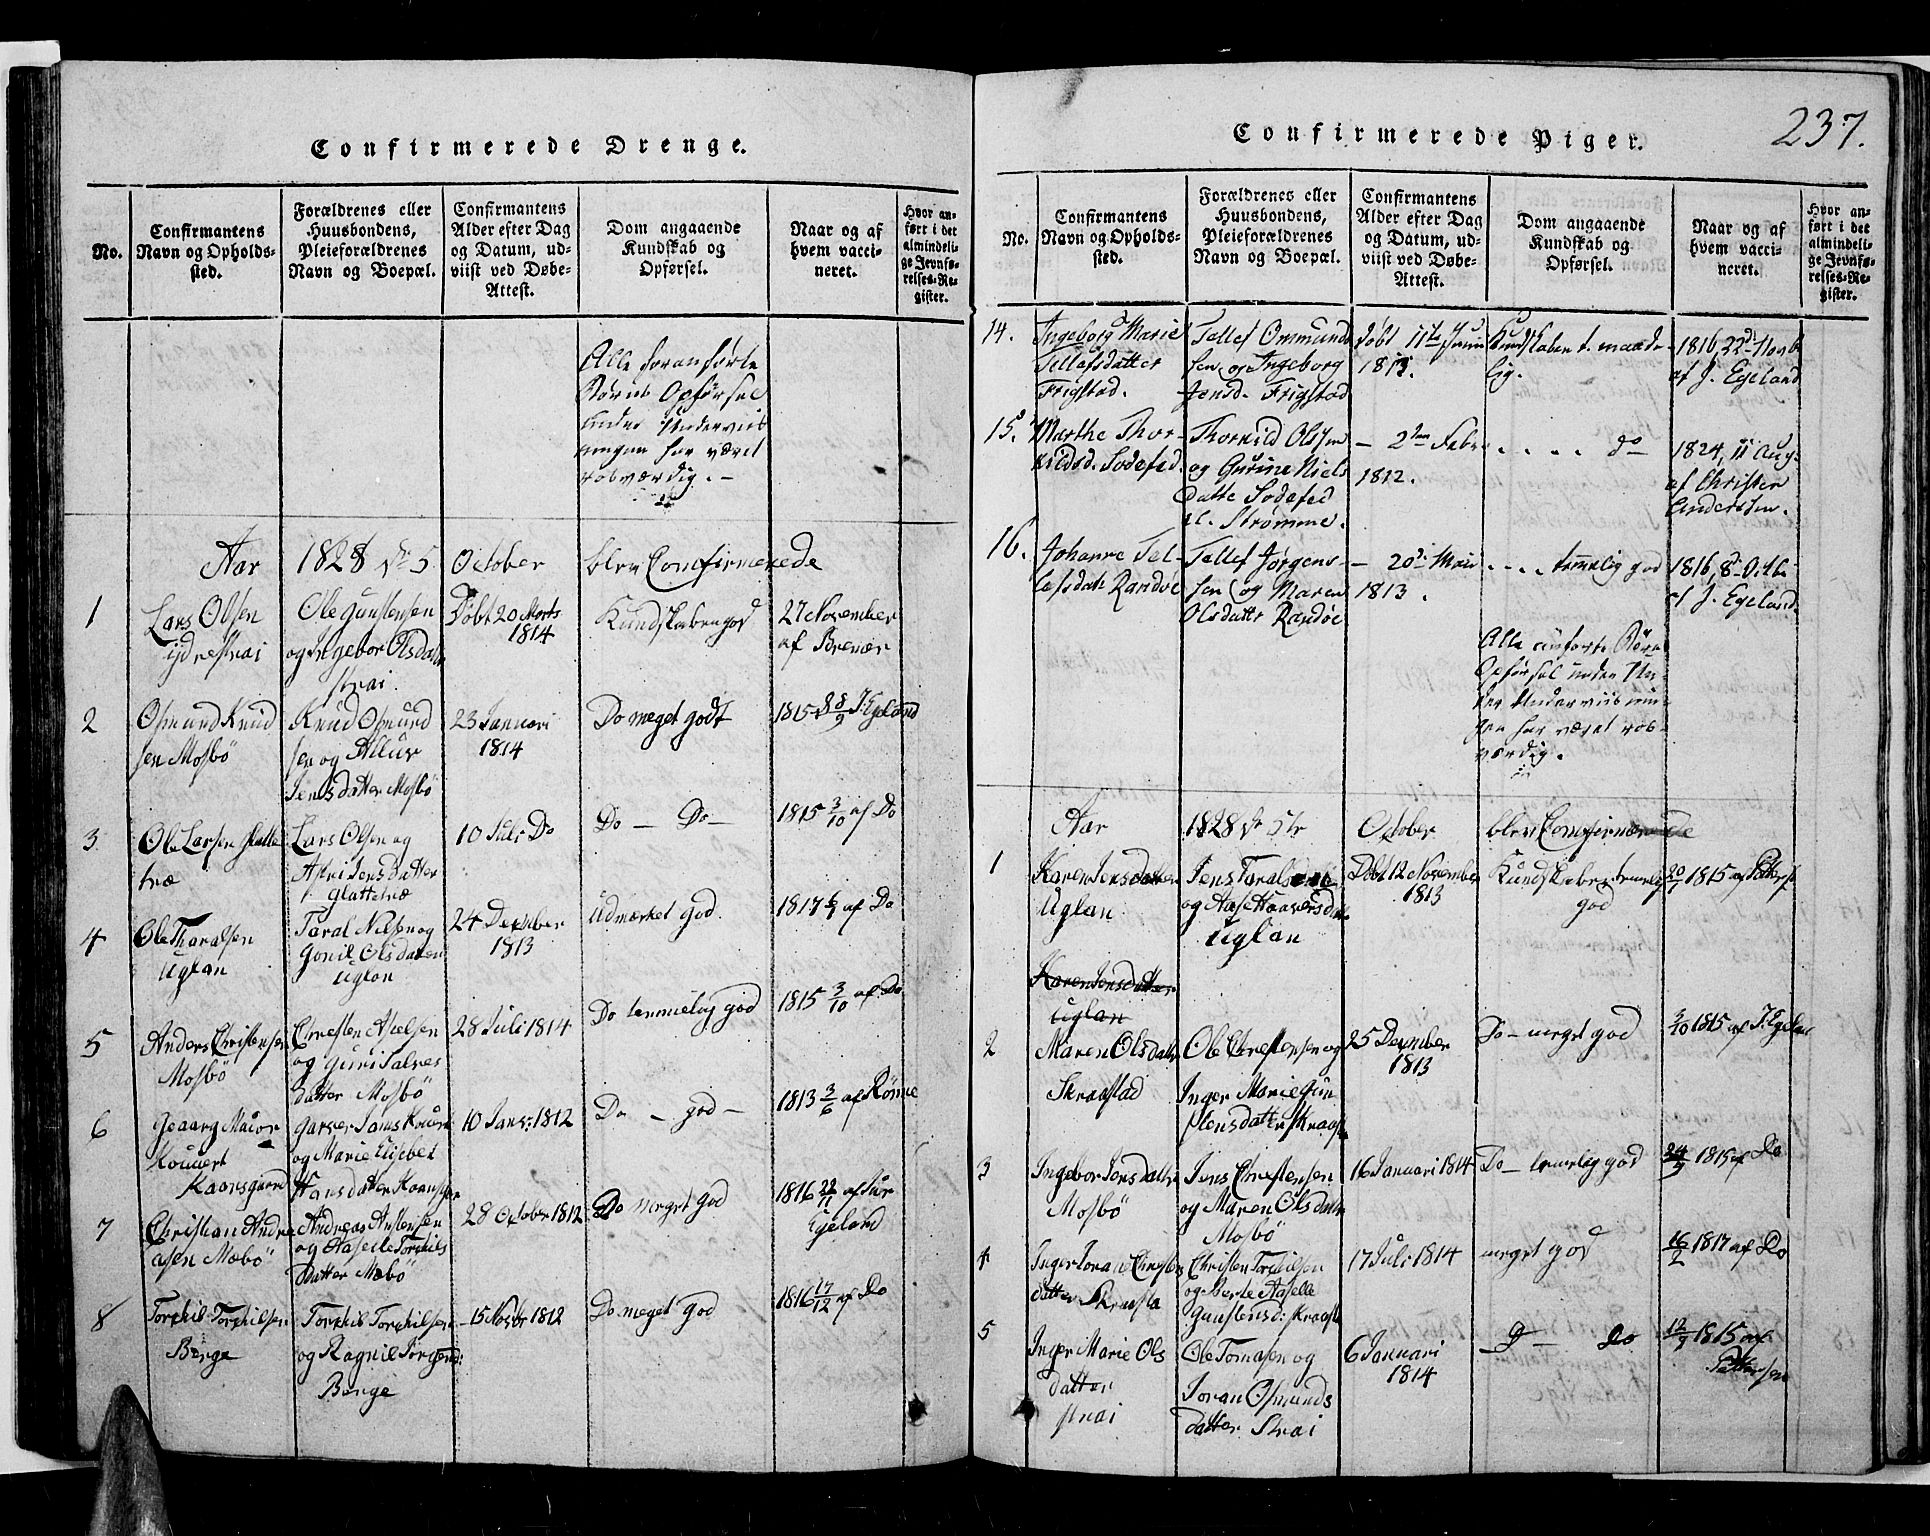 Confirmerede Drenge.
No.
Confirmantens
Navn og Opholds-
sted.
Forældrenes eller
Huusbondens,
Pleieforældrenes
Navn og Boepæl.
Confirmantens
Alder efter Dag
og Datum, ud-
viist ved Døbe-
Attest.
Dom angaaende
Kundskab og
Opførsel.
Naar og af
hvem vacci-
neret.
Hvor an-
ført i det
almindeli-
ge Jevnfø-
relses-Re-
gister.
Alle foranførte
Børns Opførsel
under Underviis
ningen har været
roesværdig. -
Aar 1828 5 October blev Confirmerede
1
Lars Olsen
ydrestrai
Ole Gunstensen
og Ingebor Olsdatr
strai.
Døbt 20 Marts
1814
Kundskaben god
27 November
af Brenær
2
Osmund Knud
sen Mosbö
Knud Osmund
sen og
Jensdatter Mosbö
23 Januari
1814
Do meget godt
1815 28/9 J. Egeland
3
Ole Larsen glatte
træ
Lars Olsen og
Asri Jensdatter
glattetræ
10 Juli Do
Do - Do -
1815 3/10 af Do
4
Ole Tharalsen
Uglan
Taral Nilsen og
Gonil Olsdatter
Uglan
24 December
1813
Udmærket god.
1817 af Do
5
Anders Christensen
Mosbö
Christen Aselsen
og Guri Talves
datter Mosbö
28 Juli 1814
Do temmelig god
1815 3/10 af Do
6
Geaarg Maior
Kouvert
Kaarsgaard
og Marie Elisebet
Hansdatter
10 Jans: 1812
Do - god -
1813 3/6 af Rönne
7
Christian Andre
asen Mæbö
Andreas Anstensen
og Aaselle Torkils
datter Mæbö
28 October 1812
Do meget god
1816 22/11 af
Egeland
8
Torkil Torkilsen
Berge
Torkil Torkilsen
og Ragnil Jörgensd:
Berge
15 Novbr 1812
Do meget god
1816 17/12 af Do
Confirmerede Piger.
237.
No.
Confirmantens
Navn og Opholds-
sted.
Forældrenes eller
Huusbondens,
Pleieforældrenes
Navn og Boepæl.
Confirmantens
Alder efter Dag
og Datum, ud-
viist ved Døbe-
Attest.
Dom angaaende
Kundskab og
Opførsel.
Naar og af
hvem vacci-
neret.
Hvor an-
ført i det
almindeli-
ge Jevnfø-
relses-Re-
gister.
14.
Ingeborg Marie
Tellefsdatter
Frigstad.
Tellef Ommunds
sen og Ingeborg
Jensd. Frigstad
Døbt 11te Juni
1813.
Kundskaben t. maade
lig.
1816, 22d Novb
af J. Egeland
15.
Marthe Thor-
kildsd. Sodefed.
Thorkild Olssen
og Gurine Niels
Datte Sodefed
Strømme.
- 2den Febr
1812.
. . . . . do
1824, 11 Aug.
af Christen
Anderssen.
16.
Johanne Tel-
lefsdatt. Randøe
Tellef Jørgens-
sen og Maren
Olsdattr Randøe
- 20de Mai
1813.
. . . . temelig god
1816, 8d Octb.
af J. Egeland
Alle anførte Børns
Opførsel under
Underviisnin-
gen har været roes-
værdig.
Aar 1828 5te October blev Confirmerede
1
Karen Jensdatter
Uglan
Jens Taralsen
og Aase Haaversdatr
Uglan
Døbt 12 November
1813
Kundskaben temelig
god
1815 af Pettersen
Karen Jensdatter
Uglan
2
Maren Olsdattr
Skraastad
Ole Christensen og
Inger Marie Gun
stensdatter Skraast
25 December
1813
Do - meget god
3/10 1815 af J. Egelan
3
Ingebor Jensdattr
Mosbö
Jens Christensen
og Maren Olsdattr
Mosbö
16 Januari 1814
Do - temelig god
24/9 1815 af Do
4
Inger Joran Christens
datter Skraasta
Christen Torkilsen
og Berte Aaselle
Gunstensd: Skraast
17 Juli 1814
meget god
16/2 1817 af Do
5
Inger Marie Ols
datter
strai
Ole Tomasen og
Joran Osmunds
datter Strai
6 Januari
1814
D - Do
1815 af
Pettersen